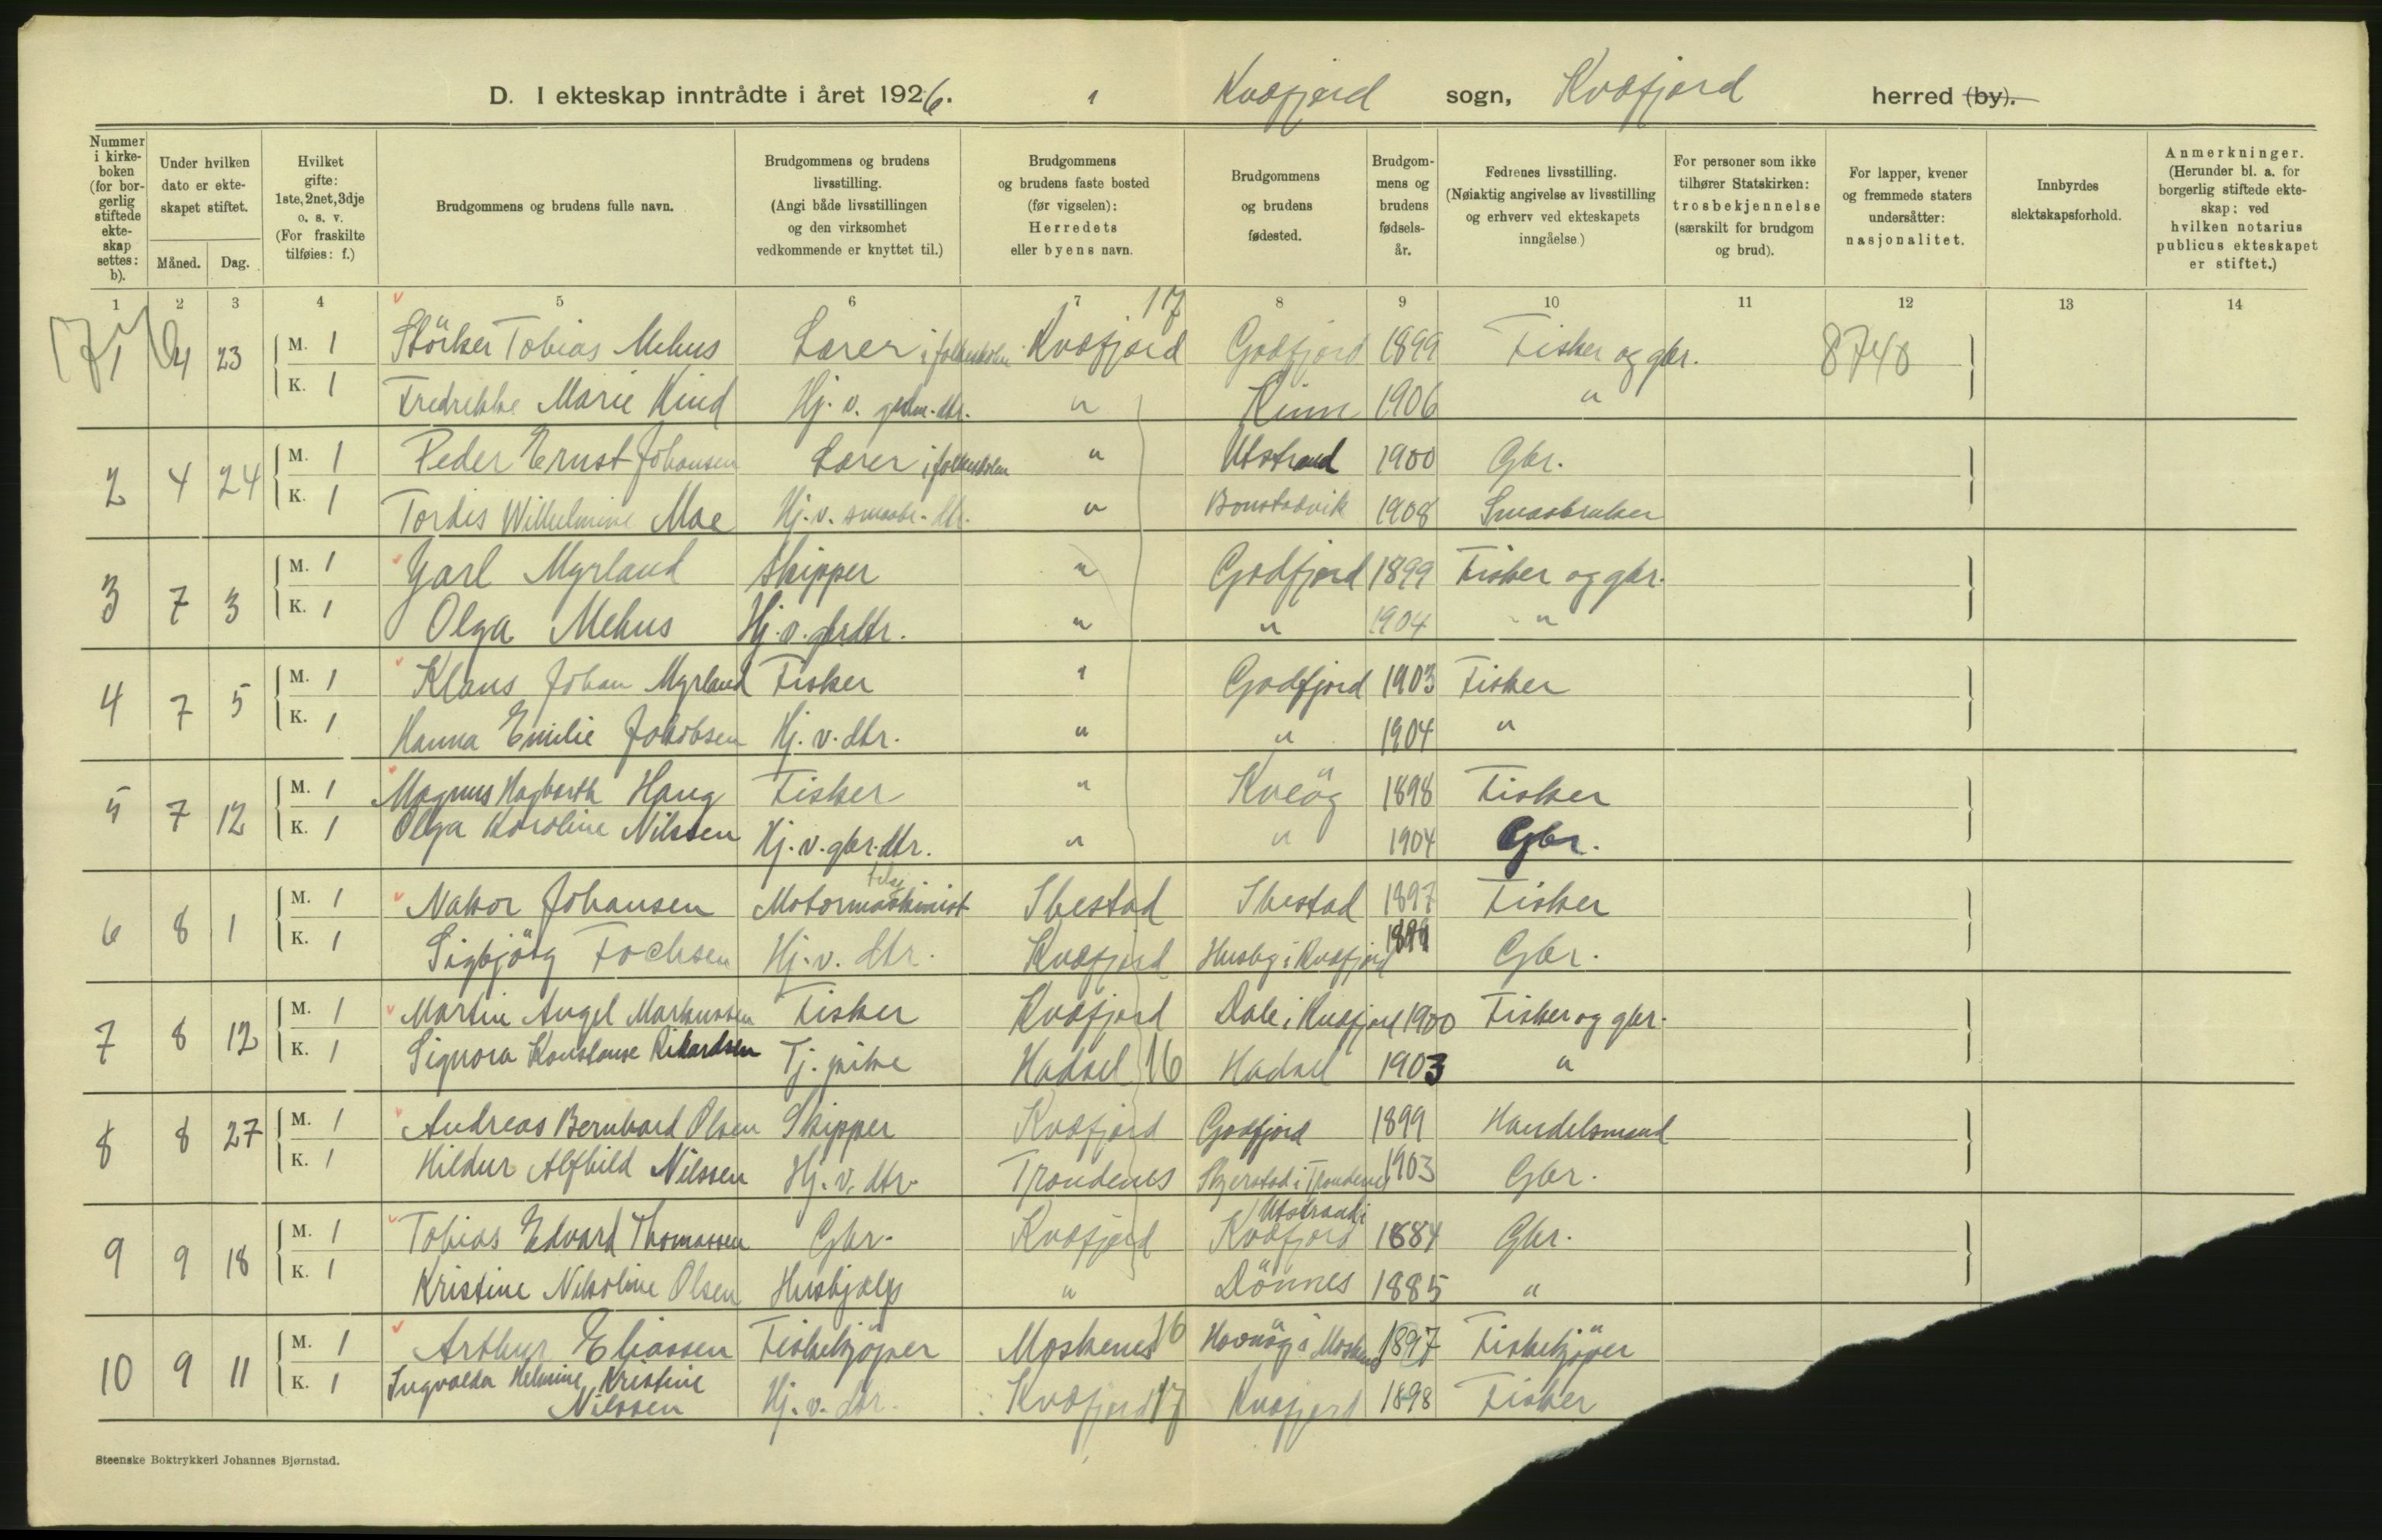 D. I ekteskap inntrådte i året 1926. Kvæfjord sogn, Kvæfjord herred (by).
Nummer i kirkeboken (for borgerlig stiftede ekteskap settes: b).
Under hvilken dato er ekteskapet stiftet.
Måned. Dag.
Hvilket gifte: 1ste, 2net, 3dje o. s. v. (For fraskilte tilføies: f.)
Brudgommens og brudens fulle navn.
Brudgommens og brudens livsstilling. (Angi både livsstillingen og den virksomhet vedkommende er knyttet til.)
Brudgommens og brudens faste bosted (før vigselen): Herredets eller byens navn.
Brudgommens og brudens fødested.
Brudgommens og brudens fødselsår.
Fedrenes livsstilling. (Nøiaktig angivelse av livsstilling og erhverv ved ekteskapets inngåelse)
For personer som ikke tilhører Statskirken: trosbekjennelse (særskilt for brudgom og brud).
For lapper, kvener og fremmede staters undersåtter: nasjonalitet.
Innbyrdes slektskapsforhold.
Anmerkninger. (Herunder bl. a. for borgerlig stiftede ekteskap: ved hvilken notarius publicus ekteskapet er stiftet.)
1 2 3 4 5 6 7 8 9 10 11 12 13 14
17
1 4 23 M. 1 Störker Tobias Mehus Lærer i folkeskolen Kvæfjord Godfjord 1899 Fisker og gbr. 8748
K. 1 Fredrikke Marie Kind Hj. v. " Kinn 1906 "
2 4 24 M. 1 Peder Ernst Johansen Lærer i folkeskolen " Utstrand 1900 Gbr.
K. 1 Tordis Wilhelmine Moe Hj. v. smaabr. dtr. " Bonstadvik 1908 Smaabruker
3 7 3 M. 1 Jarl Myrland Skipper " Godfjord 1899 Fisker og gbr.
K. 1 Olga Mehus Hj. v. gbrdtr. " " 1904 "
4 7 5 M. 1 Klaus Johan Myrland Fisker " Godfjord 1903 Fisker
K. 1 Hanna Emilie Jakobsen Hj. v. dtr. " " 1904 "
5 7 12 M. 1 Magnus Hagbarth Haug Fisker " Kveöy 1898 Fisker
K. 1 Olga Karoline Nilssen Hj. v. gbr. dtr. " " 1904 Gbr.
6 8 1 M. 1 Nakor Johansen Motormaskinist Ibestad Ibestad 1897 Fisker
K. 1 Sigbjörg Fochsen Hj. v. dtr. Kvæfjord Husby i Kvæfjord 1899 Gbr.
7 8 12 M. 1 Martin Angel Markussen Fisker Kvæfjord Dale i Kvæfjord 1900 Fisker og gbr.
K. 1 Signora Konstanse Rikardsen Tj. pike Hadsel 16 Hadsel 1903 "
8 8 27 M. 1 Andreas Bernhard Olsen Skipper Kvæfjord Godfjord 1899 Handelsmand
K. 1 Hildur Alfhild Nilssen Hj. v. dtr. Trondenes i Trondenes 1903 Gbr.
9 9 18 M. 1 Tobias Edvard Thomassen Gbr. Kvæfjord Utstrand i Kvæfjord 1884 Gbr.
K. 1 Kristine Nikoline Olsen Hushjælp " Dönnes 1885 "
10 9 11 M. 1 Arthur Eliassen Fiskekjöper Moskenes 16 Havnöy i Moskenes 1897 Fiskekjöper
K. 1 Ingvalda Helmine Kristine Nilssen Hj. v. dtr. Kvæfjord 17 Kvæfjord 1898 Fisker
Steenske Boktrykkeri Johannes Bjørnstad.